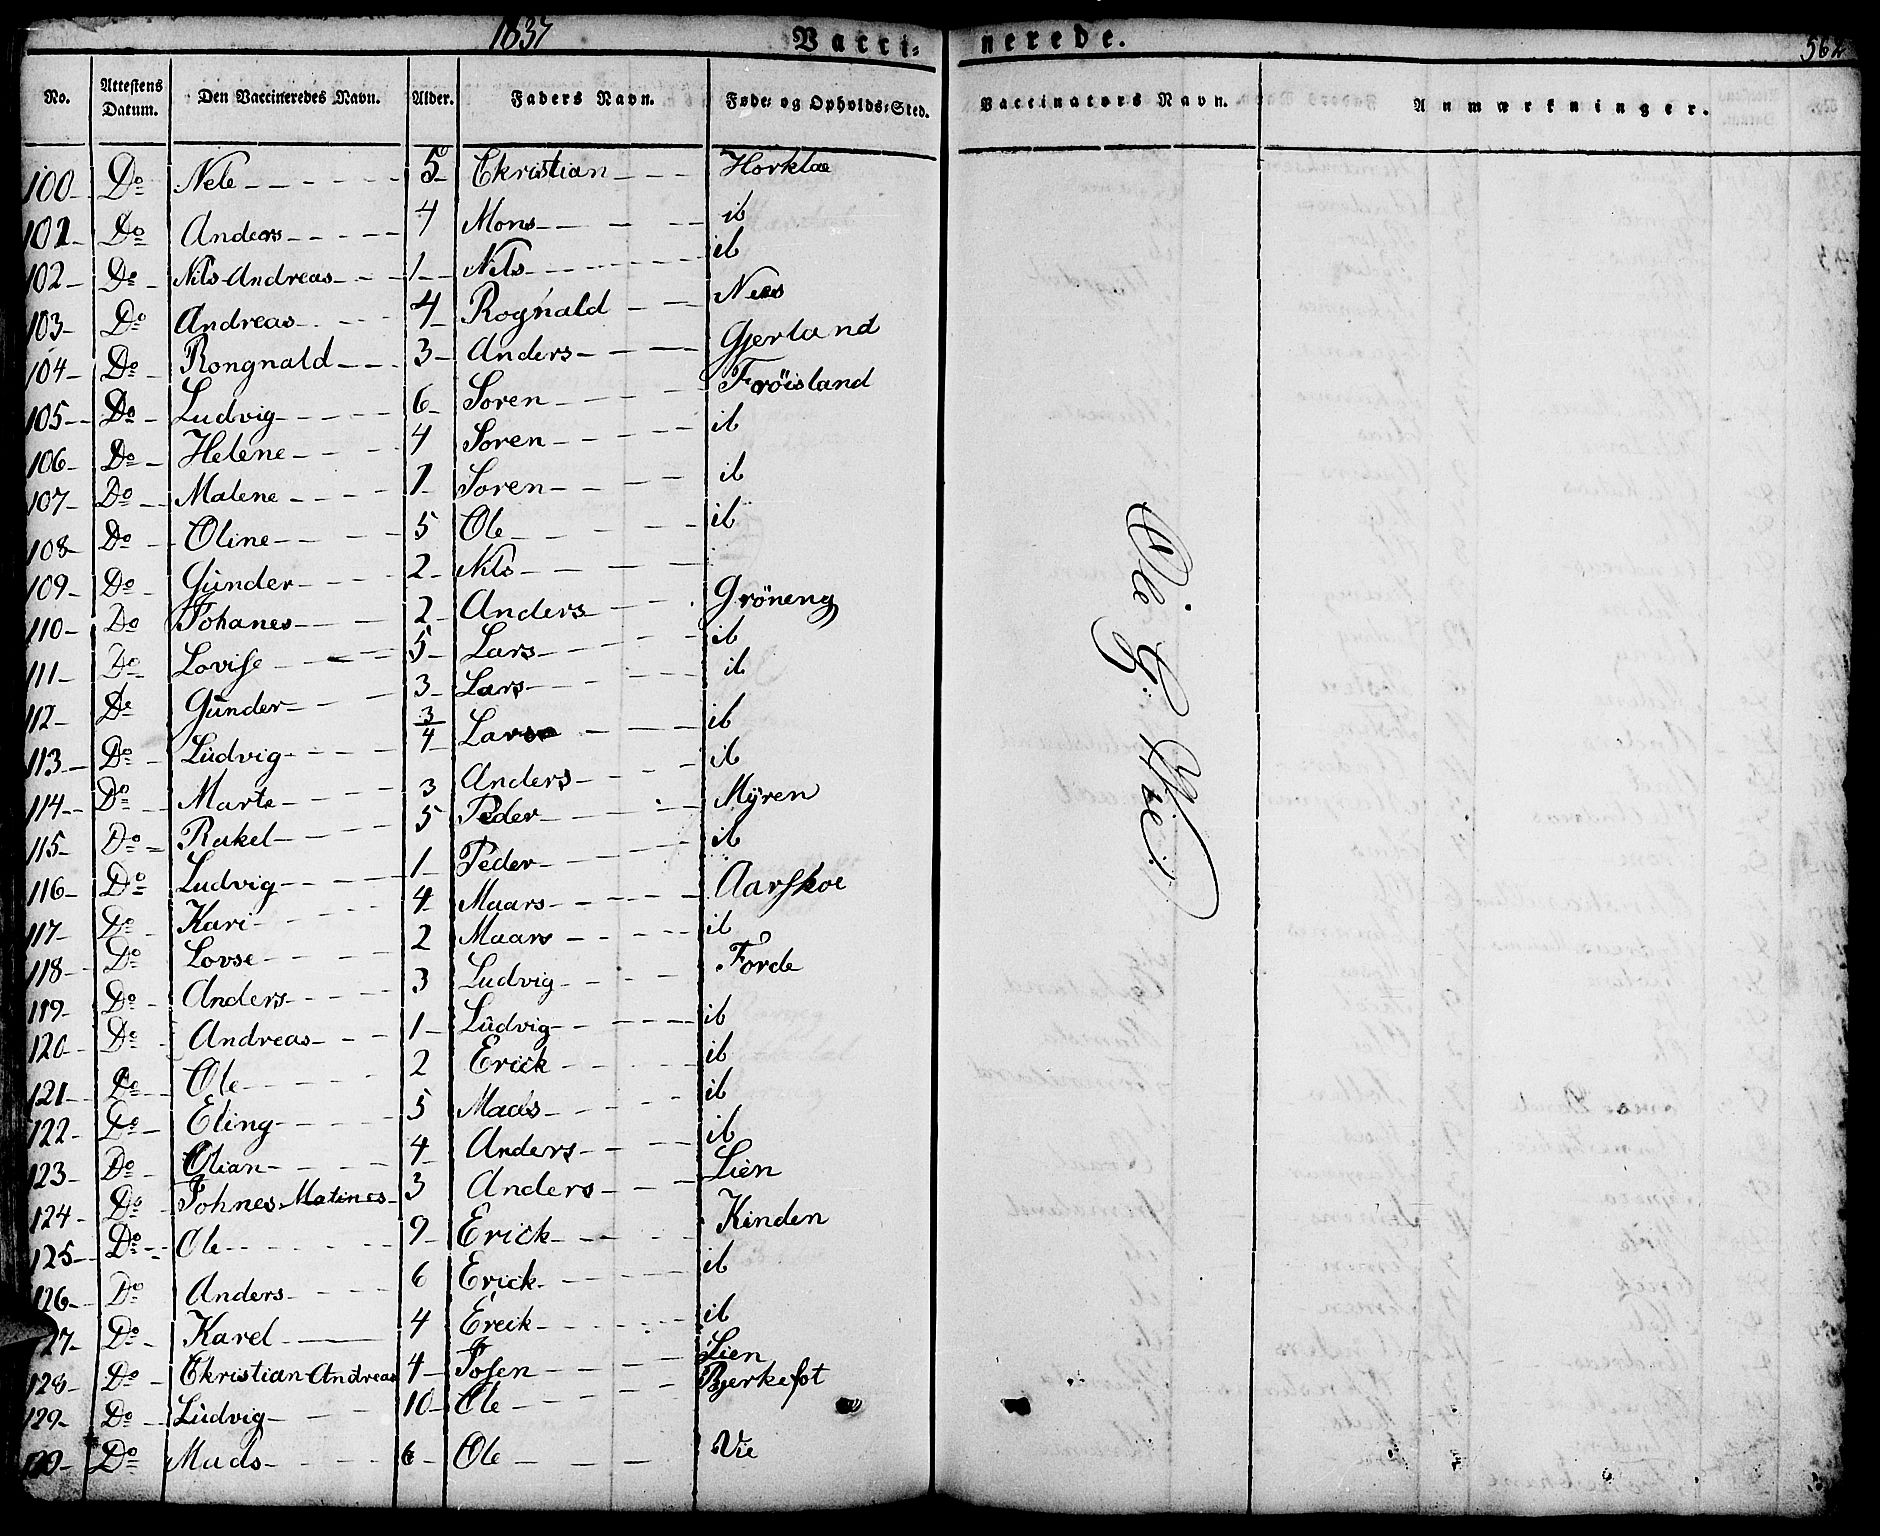 1837 Vacci- nerede. 562
No. Attestens Datum. Den Vaccineredes Navn. Alder. Faders Navn. Føde- og Opholds-Sted. Vaccinators Navn. Anmærkninger.
100 Do Nele 5 Christian Horklæ
101 Do Anders 4 Mons ib
102 Do Nils Andreas 1 Nils ib
103 Do Andreas 4 Rognald Nees
104 Do Rongnald 3 Anders Gjerland
105 Do Ludvig 6 Soren Fröisland
106 Do Helene 4 Soren ib
107 Do Malene 1 Soren ib
108 Do Oline 5 Ole ib
109 Do Gunder 2 Nils
110 Do Johanes 2 Anders Gröneng
111 Do Lovise 5 Lars ib
112 Do Gunder 3 Lars ib
113 Do Ludvig 3/4 Lars ib
114 Do Marte 3 Anders ib
115 Do Rakel 5 Peder Myren
116 Do Ludvig 1 Peder ib
117 Do Kari 4 Maars Aarskoe
118 Do Lovse 2 Maars ib
119 Do Anders 3 Ludvig Forde
120 Do Andreas 1 Ludvig ib
121 Do Ole 2 Erick ib
122 Do Eling 5 Mads ib
123 Do Olian 4 Anders ib
124 Do Johnes Matines 3 Anders Lien
125 Do Ole 9 Erick Kinden
126 Do Anders 6 Erick ib
127 Do Karel 4 Ereik ib
128 Do Christian Andreas 4 Josen Lien
129 Do Ludvig 10 Ole Bjerkefot
Do Mads 6 Ole Vie
Ole G: Vie